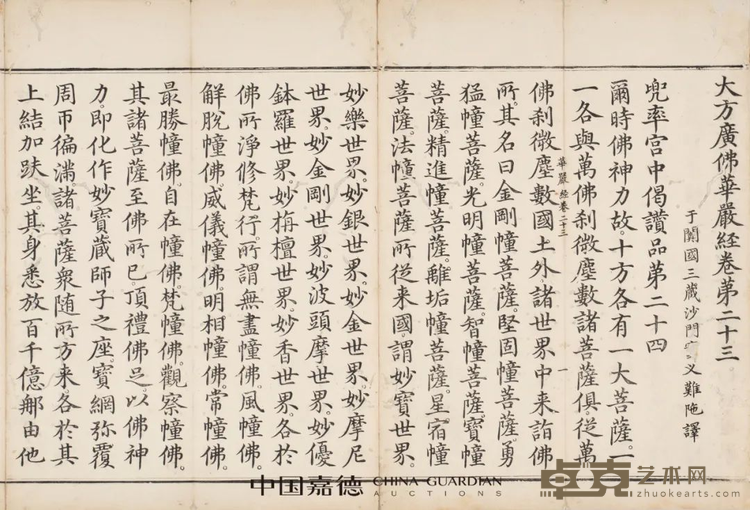 大方廣佛華嚴經卷第二十三
于闐國三藏沙門 义難陁譯
兜率宮中偈讚品第二十四
爾時佛神力故。十方各有一大菩薩。一
一各與萬佛刹微塵數諸菩薩俱。從萬
華嚴經卷二十三 一
佛刹微塵數國土外諸世界中来詣佛
所。其名曰金剛幢菩薩。堅固幢菩薩。勇
猛幢菩薩。光明幢菩薩。智幢菩薩。寶幢
菩薩。精進幢菩薩。離垢幢菩薩。星宿幢
菩薩。法幢菩薩。所從来國。謂妙寶世界。
妙樂世界。妙銀世界。妙金世界。妙摩尼
世界。妙金剛世界。妙波頭摩世界。妙優
鉢羅世界。妙栴檀世界。妙香世界。各於
佛所淨修梵行。所謂無盡幢佛。風幢佛。
解脫幢佛。威儀幢佛。明相幢佛。常幢佛。
最勝幢佛。自在幢佛。梵幢佛。觀察幢佛。
其諸菩薩至佛所已。頂禮佛足。以佛神
力。即化作妙寶藏師子之座。寶網弥覆
周帀徧滿。諸菩薩衆随所方来。各於其
上結加趺坐。其身悉放百千億郍由他
中国嘉德 CHINA GUARDIAN
AUCTIONS
卓克艺术网
zhuokearts.com